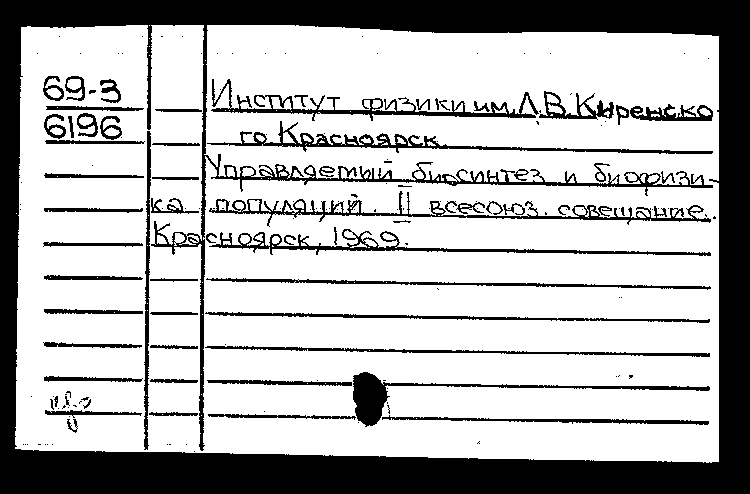 69-3 Институт физики им. Л.В. Киренско-
6196 го. Красноярск.
Управляемый биосинтез и биофизи-
ка популяций. II всесоюз. совещание.
Красноярск, 1969.